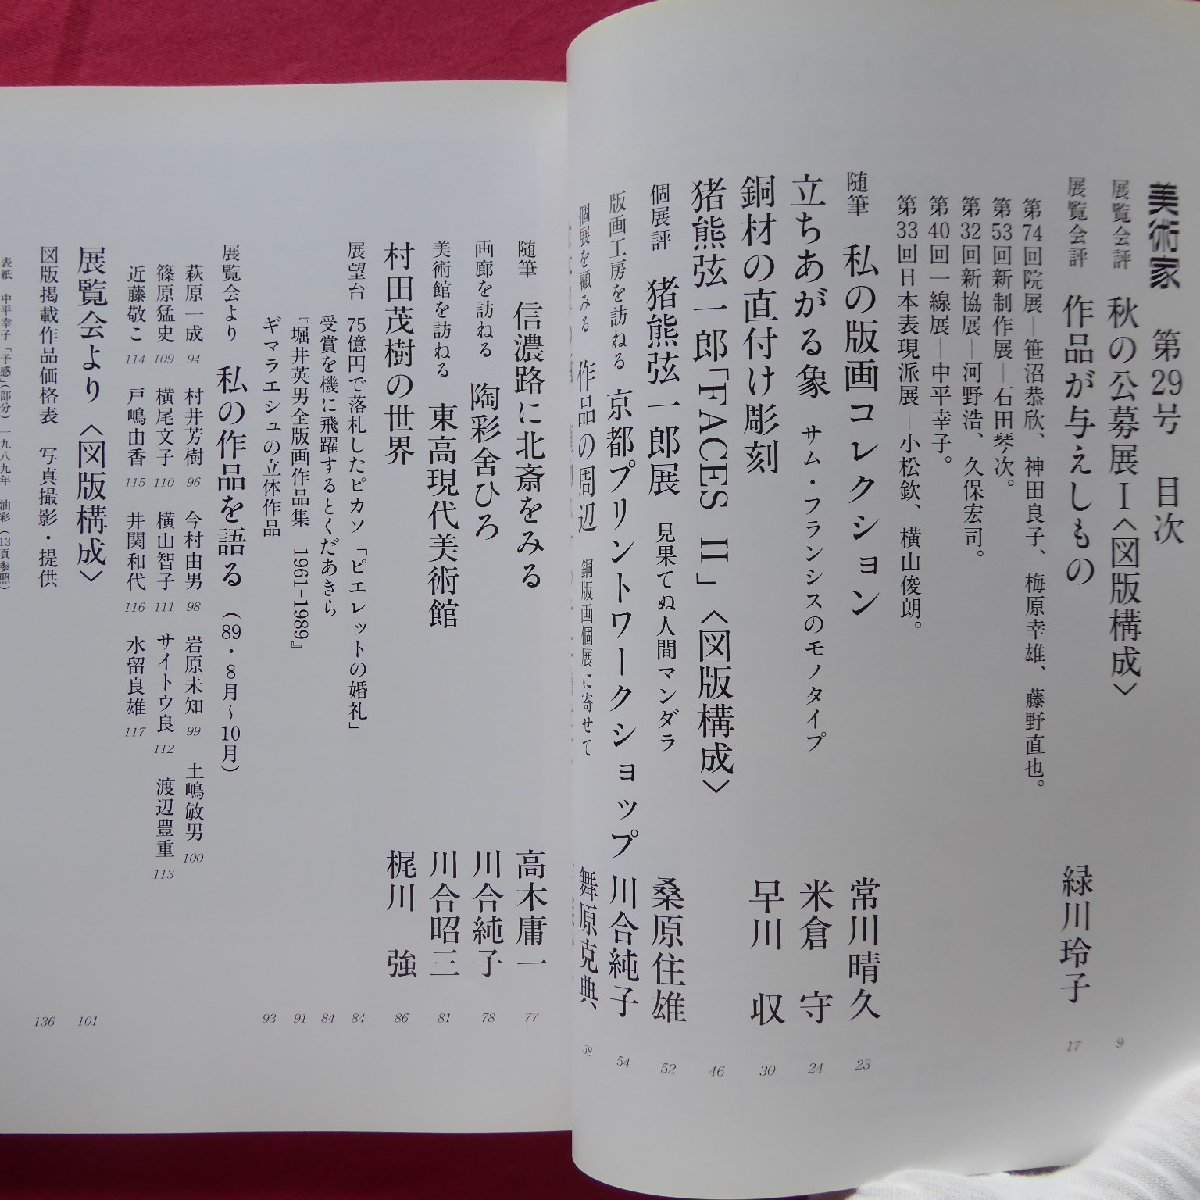 美術家 第29号 目次
展覧会評 秋の公募展Ⅰ〈図版構成〉 9
展覧会評 作品が与えしもの 緑川玲子 17
第74回院展―笹沼恭欣、神田良子、梅原幸雄、藤野直也。
第53回新制作展―石田琴次。
第32回新協展―河野浩、久保宏司。
第40回一線展―中平幸子。
第33回日本表現派展―小松欽、横山俊朗。
随筆 私の版画コレクション 常川晴久 23
立ちあがる象 サム・フランシスのモノタイプ 米倉守 24
銅材の直付け彫刻 早川収 30
猪熊弦一郎「FACES II」〈図版構成〉 46
個展評 猪熊弦一郎展 見果てぬ人間マンダラ 桑原住雄 52
版画工房を訪ねる 京都プリントワークショップ 川合純子 54
個展を顧みる 作品の周辺 銅版画個展に寄せて 舞原克典 59
随筆 信濃路に北斎をみる 高木庸一 77
画廊を訪ねる 陶彩舎ひろ 川合純子 78
美術館を訪ねる 東高現代美術館 川合昭三 81
村田茂樹の世界 梶川強 86
展望台 75億円で落札したピカソ「ピエレットの婚礼」 84
受賞を機に飛躍するとくだあきら 84
『堀井英男全版画作品集 1961-1989』 91
ギマラエシュの立体作品 93
展覧会より 私の作品を語る（89・8月～10月）
萩原一成 94 村井芳樹 96 今村由男 98 岩原未知 99 土嶋敏男 100
篠原猛史 109 横尾文子 110 横山智子 111 サイトウ良 112 渡辺豊重 113
近藤敬こ 114 戸嶋由香 115 井関和代 116 水留良雄 117
展覧会より〈図版構成〉 101
図版掲載作品価格表 写真撮影・提供 136
表紙 中平幸子「予感」(部分) 一九八九年 油彩 (13頁参照)